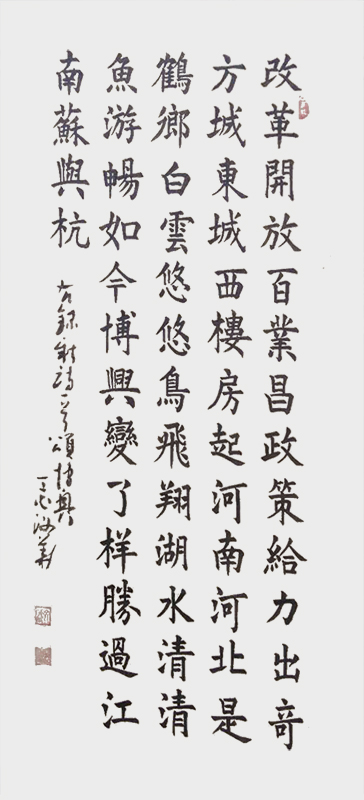 改革開放百業昌政策給力出竒
方城東城西樓房起河南河北是
鶴鄉白雲悠悠鳥飛翔湖水清清
魚游暢如今博興變了样勝過江
南蘇與杭
右錄新詩一首頌博興